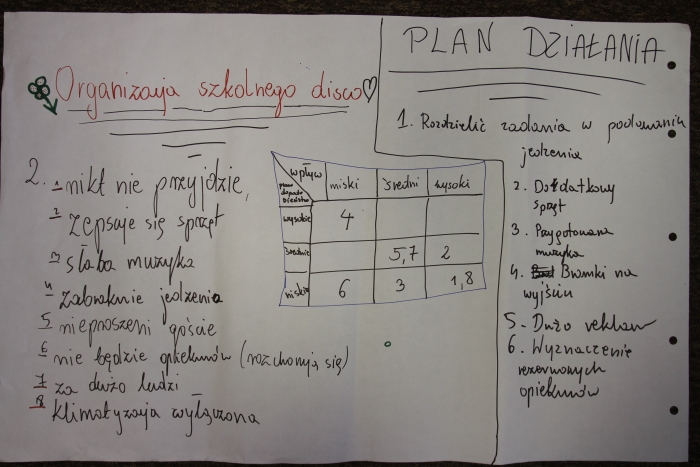 Organizacja szkolnego disco
2. 1 nikt nie przyjdzie,
2 zepsuje się sprzęt
3 słaba muzyka
4 zabraknie jedzenia
5 nieproszeni goście
6 nie będzie opiekunów (rozchorują się)
7 za dużo ludzi
8 klimatyzacja wyłączona
wpływ niski średni wysoki
wysokie 4
średnie 5,7 2
niskie 6 3 1,8
PLAN DZIAŁANIA
1. Rozdzielić zadania w podawaniu
jedzenia
2. Dodatkowy
sprzęt
3. Przygotowana
muzyka
4. Bramki na
wyjściu
5. Dużo reklam
6. Wyznaczenie
rezerwowych
opiekunów